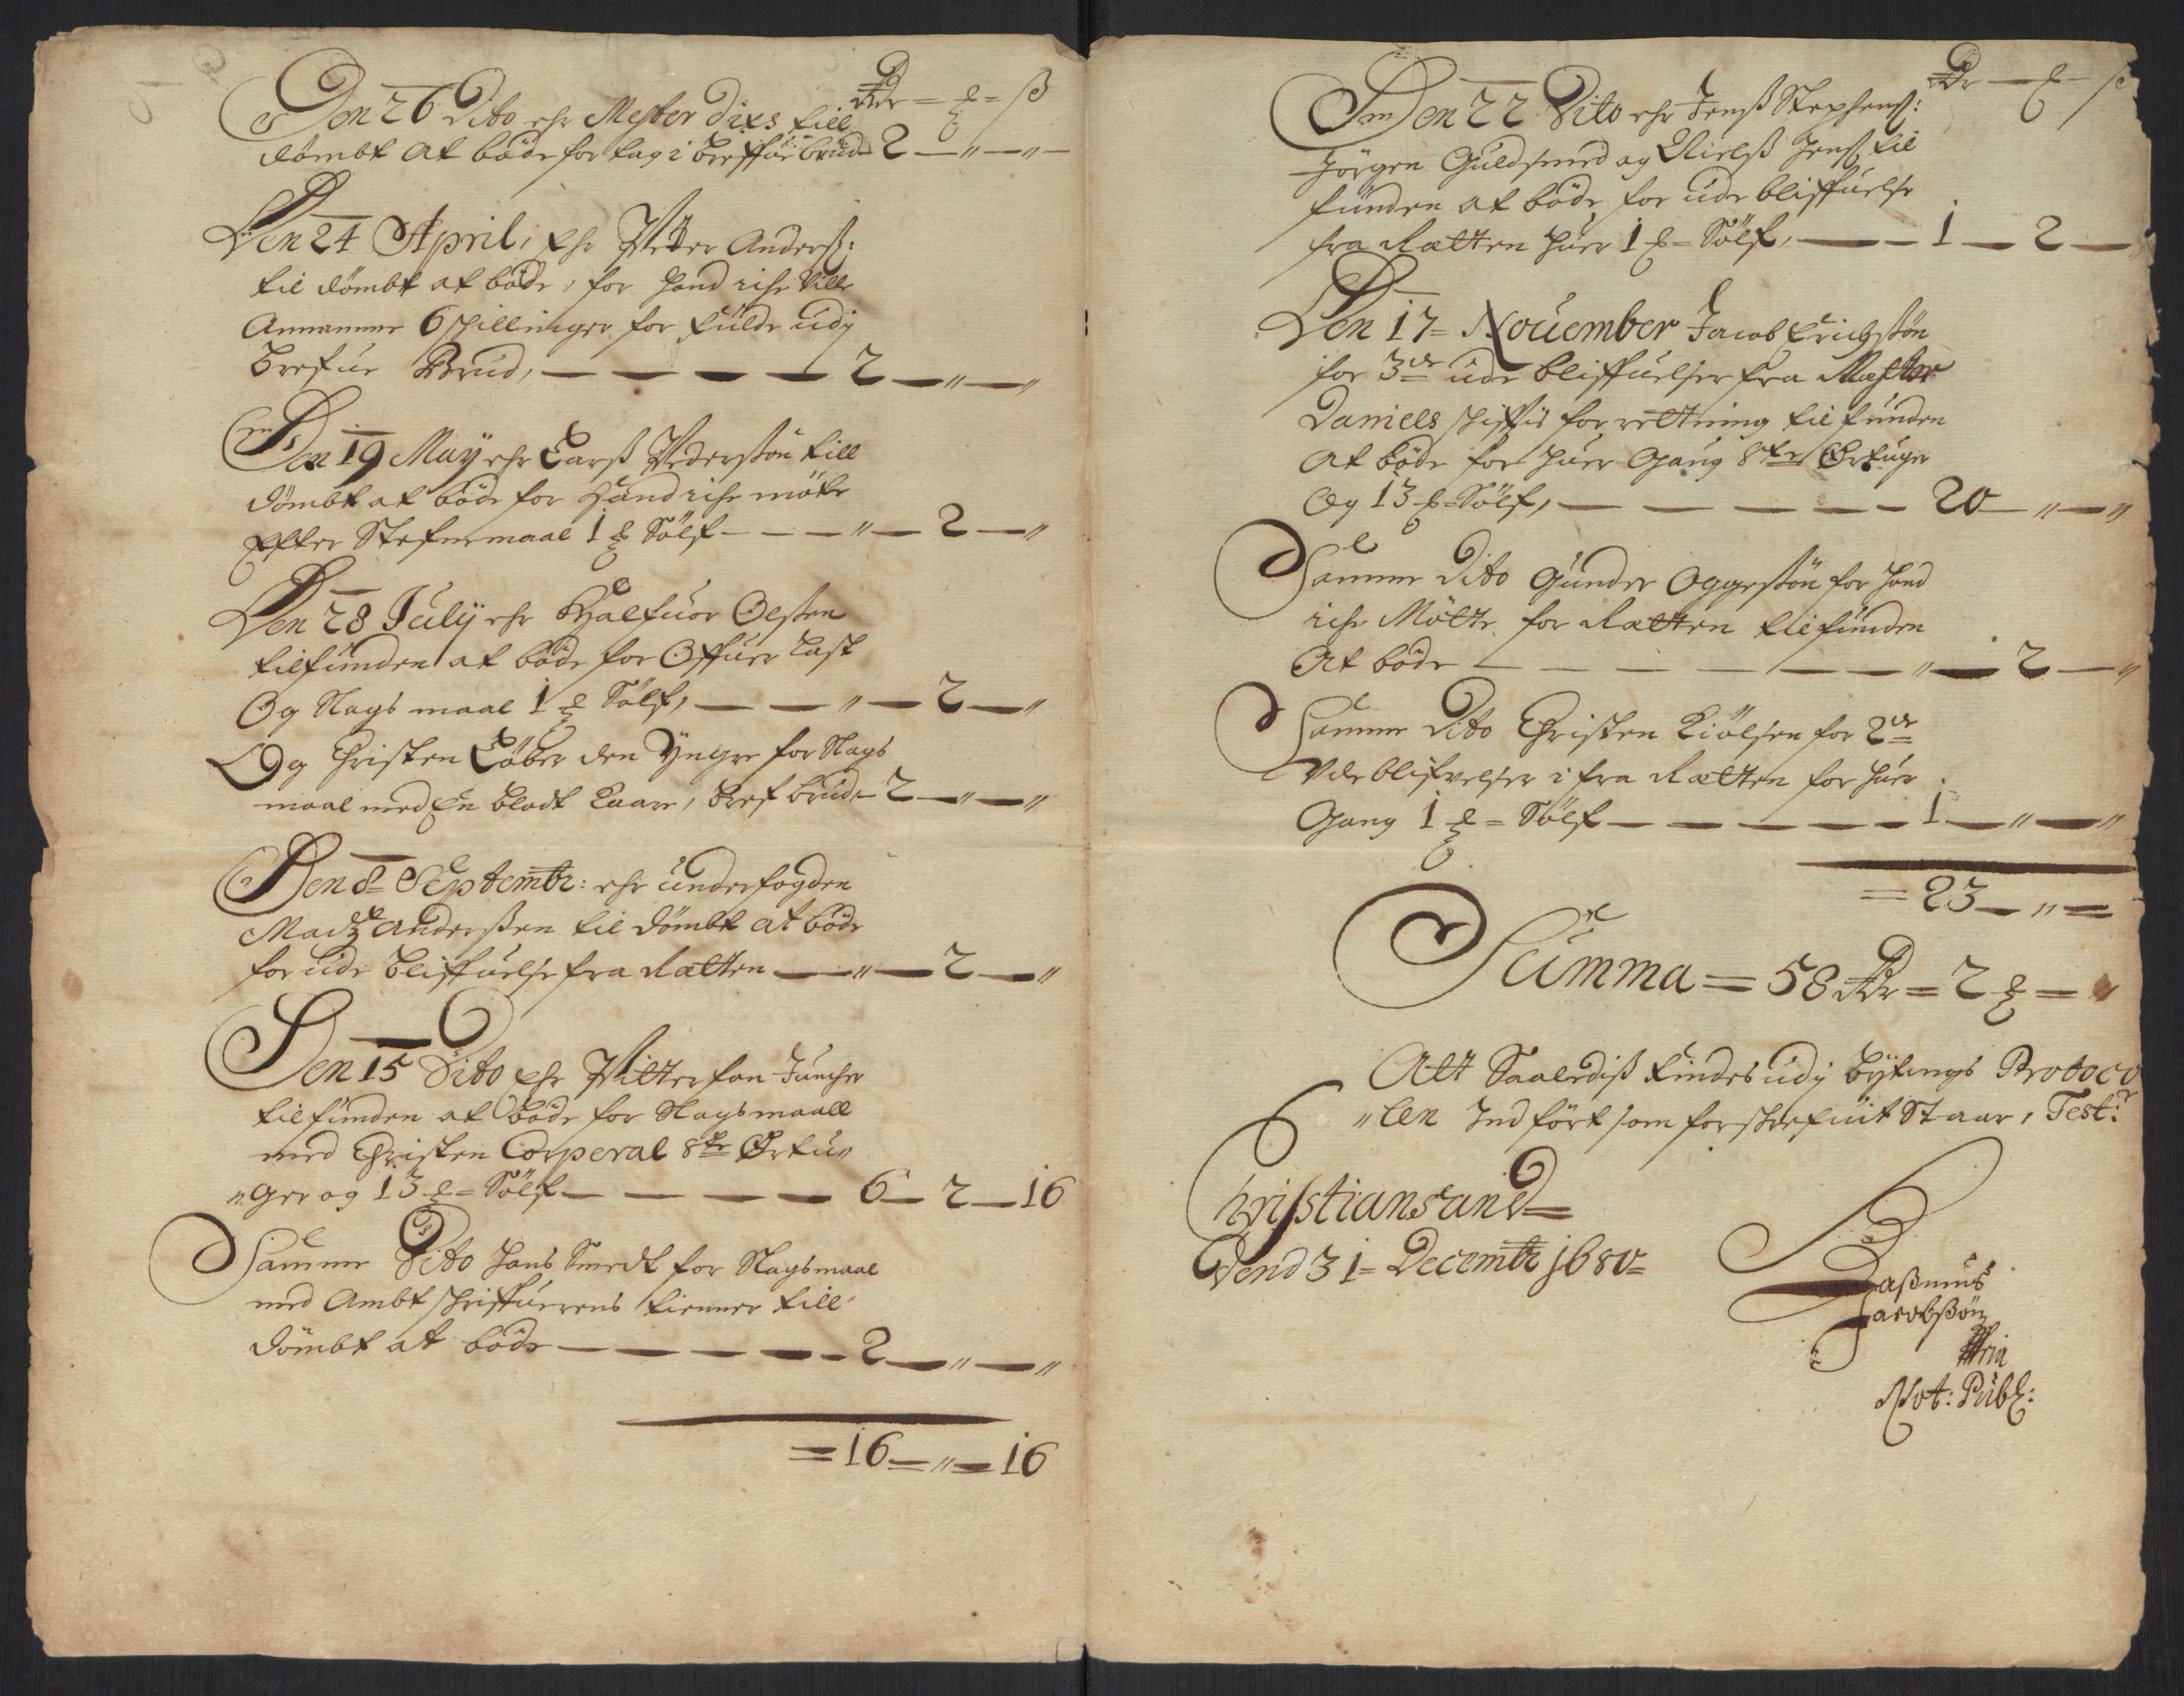 Rdr = ℔ = ß
Den 26 Dito ehr Mester Dixs till
dömbt At böde for tag i Breffue brud 2 — " — " —
Den 24 April, Ehr Peter Anderß:
til dömbt at böde, for hand iche Ville
Annamme 6 schillinger for fulde udj
Brefue Brud, — — — — 2 — " — "
Den 19 Maÿ ehr Larß Pederssøn till
dömbt at böde for Hand iche möte
Efter Stefnemaal 1 ℔ Sölf — — — " — 2 — "
Den 28 Julÿ ehr Halfuor Olssen
tilfunden at böde for Offuer Last
Og Slags maal 1 ℔ Sölf, — — " — 2 — "
Og Christen Löber den Yngre for Slags
maal med En blodt Kaare, Bref brud 2 — " — "
Den 8 = Septembr: ehr underfogden
Madz Anderßen til dömbt at böde
for ude bliffuelse fra Rætten — " — 2 — "
Den 15 Dito Ehr Pitter fan Juncher
tilfunden at böde for Slagsmaall
med Christen Corperal 8te Ørtu"
"ger og 13 ℔ = Sölf — — — — 6 — 2 — 16
Samme Dito Hans Smedt for Slagsmaal
med Ambt schriffuerens tienner till
dömbt at böde — — — — 2 — " — "
= 16 — " — 16
Rdr — ℔ — ß
Den 22 Dito ehr Jenß Stephenß:
Jörgen Guldsmed og Nielß Jenß til
funden at böde for ude bliffuelse
fra Rætten huer 1 ℔ = Sölf, — — 1 — 2 — "
Den 17 = November Jacob Erichssön
for 3de ude bliffuelser fra Mester
Daniels schiftis for rettning til funden
At böde for huer Gang 8te Ørtuger
Og 13 ℔ = Sölf, — — — — — 20 — " — "
Samme Dito Gunder Oggessön for hand
iche Mötte for Rætten tilfunden
At böde — — — — — " — 2 — "
Samme Dito Christen Kiölsen for 2de
Vdebliffvelser i fra Rætten for huer
Gang 1 ℔ = Sölf — — — — — 1 — " — "
= 23 — " =
Summa = 58 Rdr = 2 ℔ = "
Alt Saalediß findes udj bÿtings Protoco
"len Jnd fört som forschrefuit Staar, Test:r
Christiansand =
Dend 31 = Decembr 1680 =
Raßmus
Jacobßön
Not: Publ: